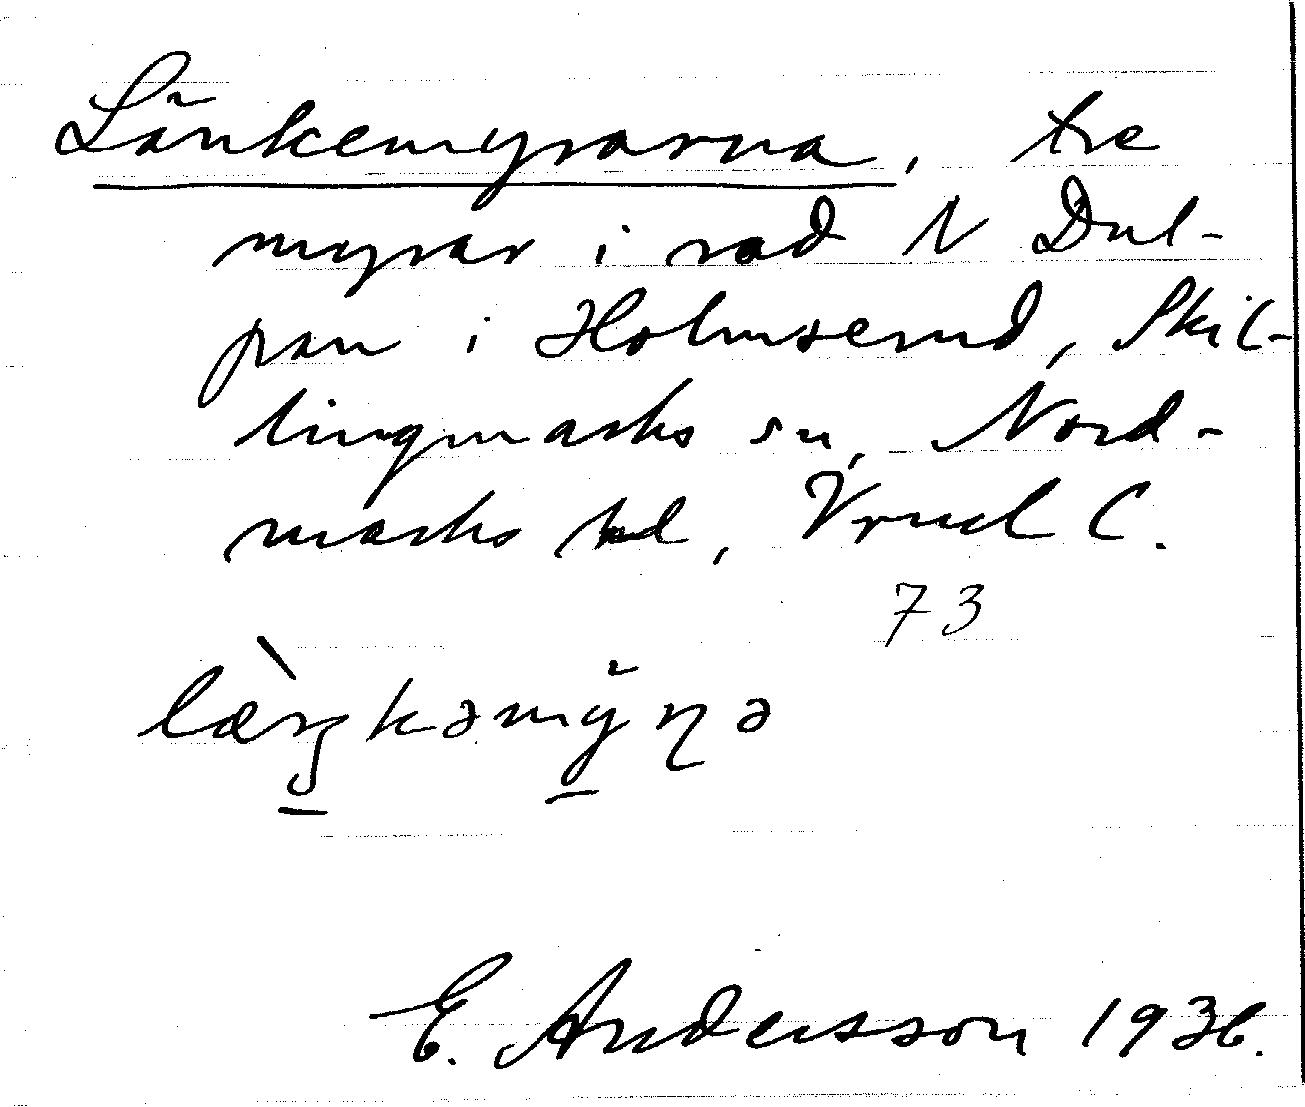 Länkemyrarna, tre
myrar i rad N Dul-
pan i Holmserud, Skil-
lingmarks sn, Nord-
marks hd, Vrml C.
73
læ̀ŋkəmy̆ɳə
E. Andersson 1936.